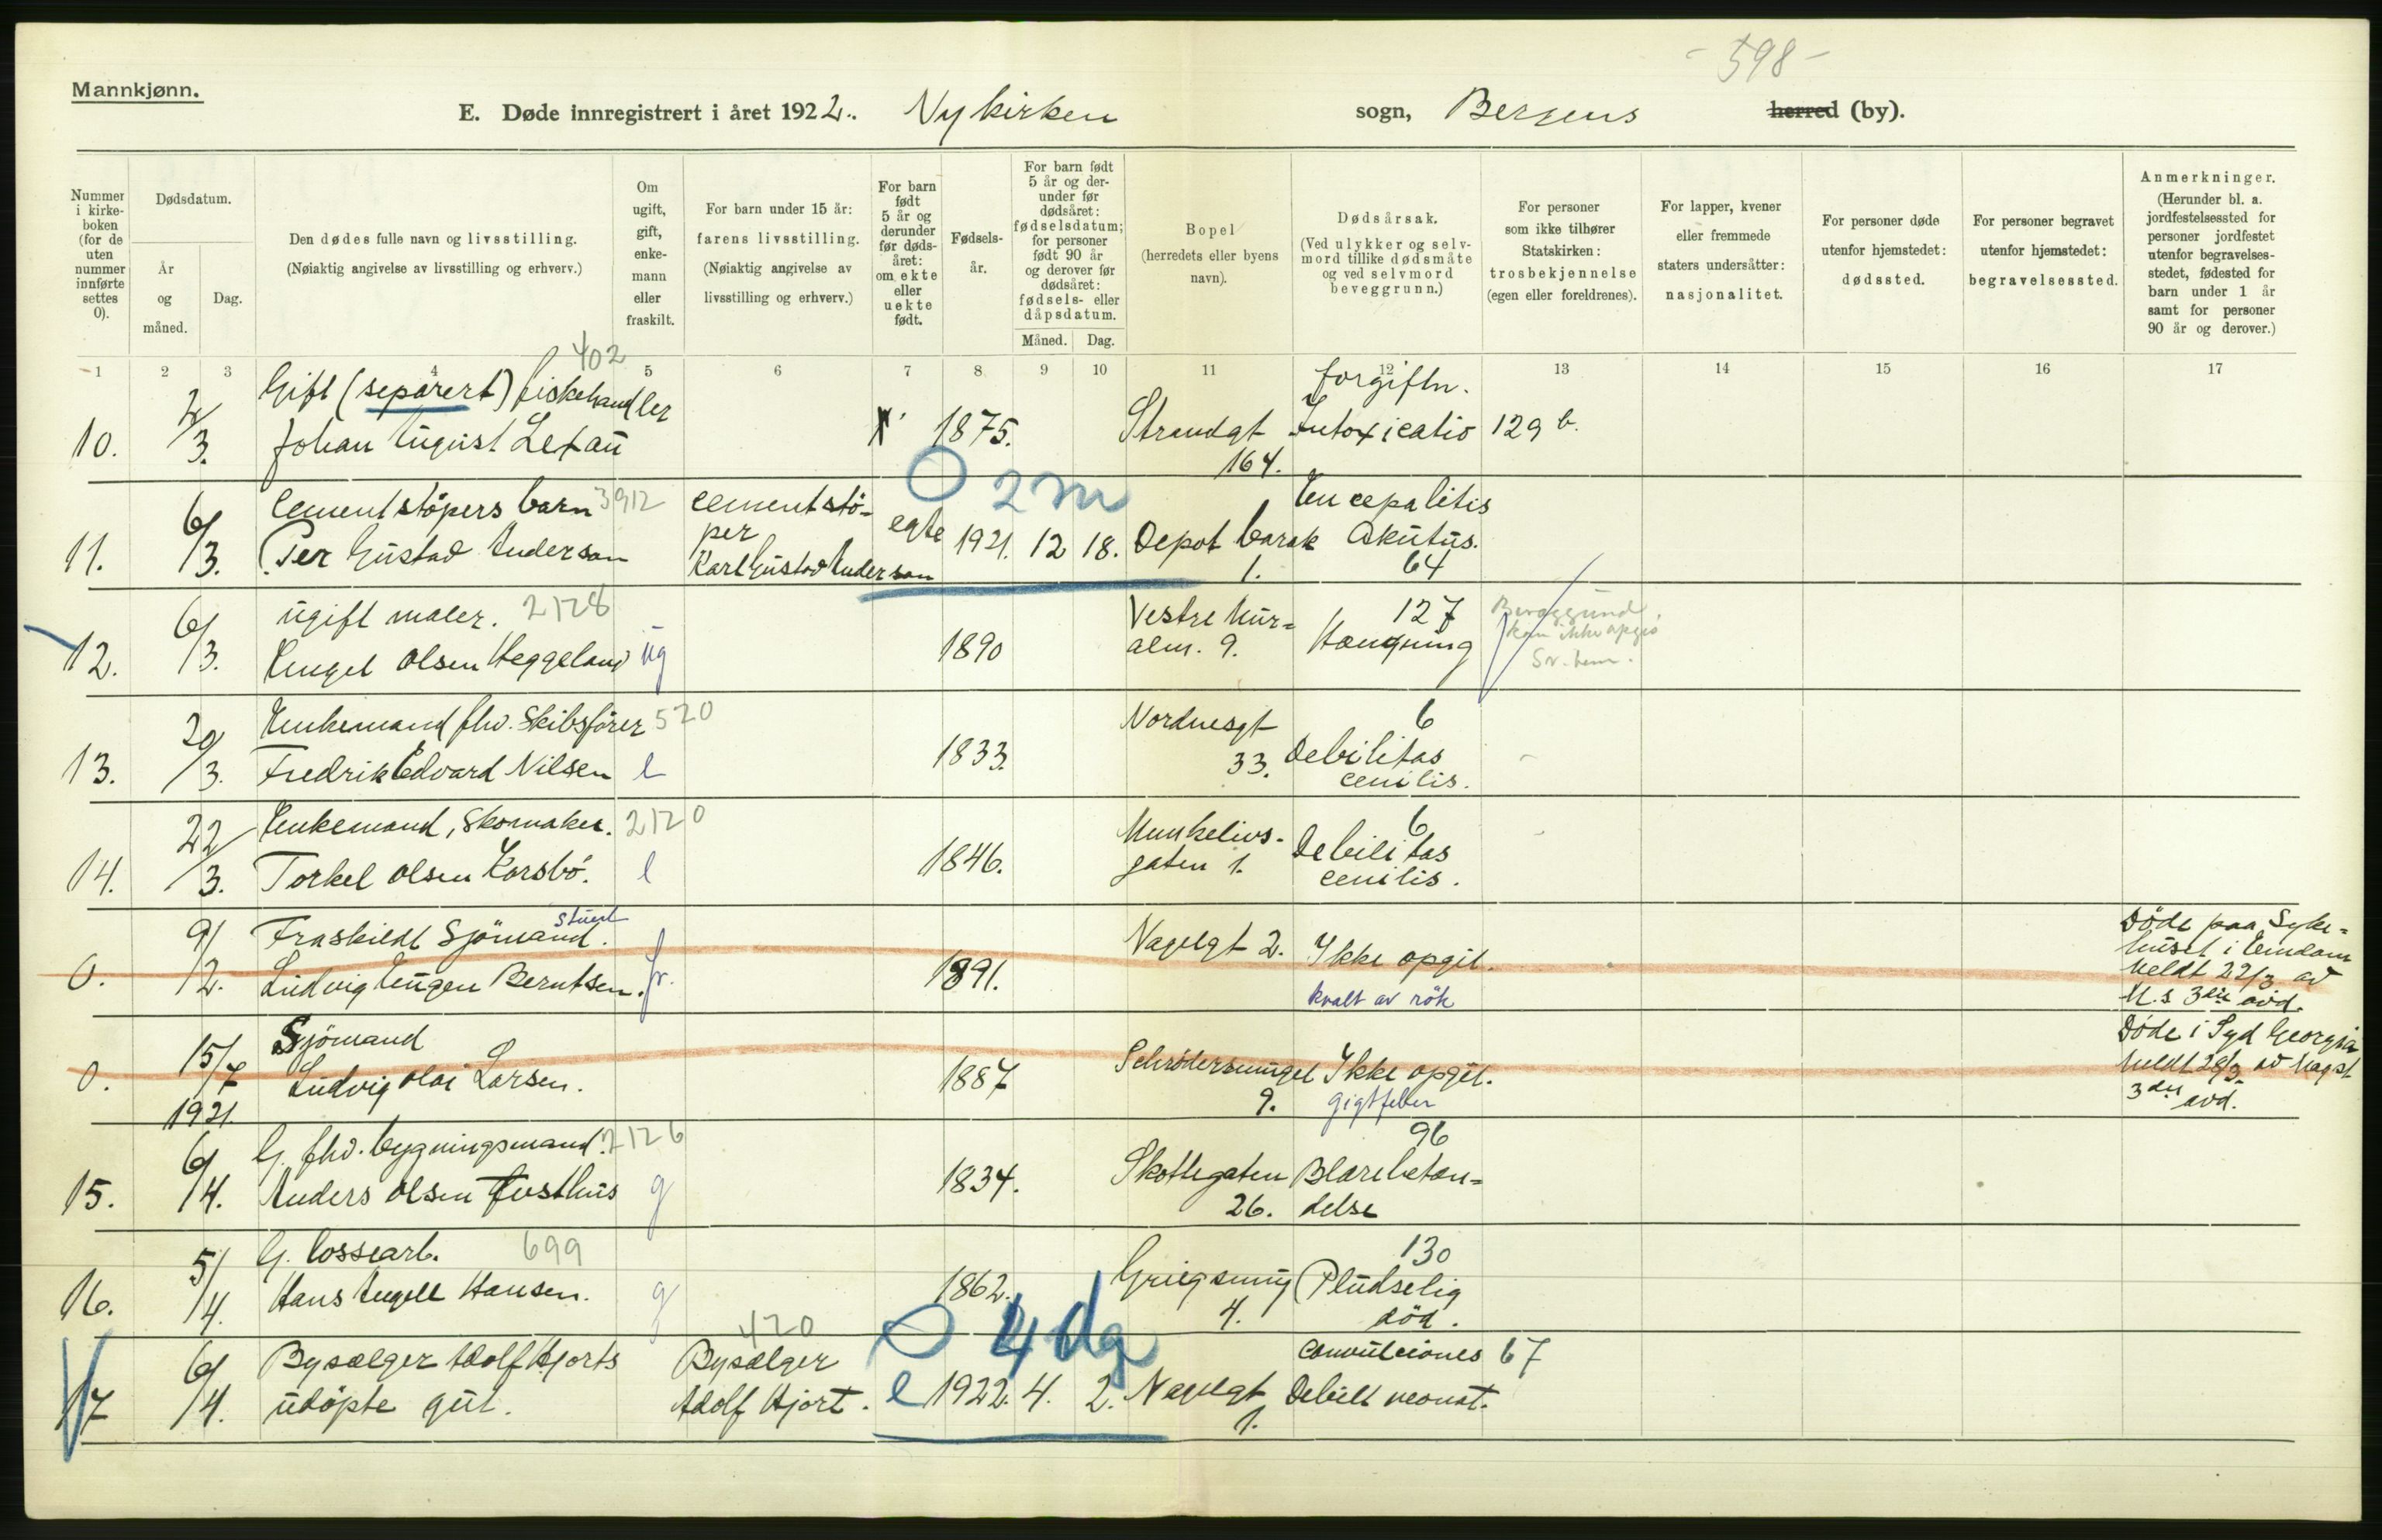 - 598 -
Mannkjønn.
E. Døde innregistrert i året 1922. Nykirken sogn, Bergens herred (by).
Nummer i kirke-boken (for de uten nummer innførte settes 0).
Dødsdatum.
År og måned.
Dag.
Den dødes fulle navn og livsstilling.
(Nøiaktig angivelse av livsstilling og erhverv.)
Om ugift, gift, enke-mann eller fraskilt.
For barn under 15 år:
farens livsstilling.
(Nøiaktig angivelse av livsstilling og erhverv.)
For barn født 5 år og derunder før døds-året: om ekte eller uekte født.
Fødsels-år.
For barn født 5 år og der-under før dødsåret: fødselsdatum; for personer født 90 år og derover før dødsåret: fødsels- eller dåpsdatum.
Måned. Dag.
Bopel
(herredets eller byens navn).
Dødsårsak.
(Ved ulykker og selv-mord tillike dødsmåte og ved selvmord beveggrunn.)
For personer som ikke tilhører Statskirken: trosbekjennelse (egen eller foreldrenes).
For lapper, kvener eller fremmede staters undersåtter: nasjonalitet.
For personer døde utenfor hjemstedet: dødssted.
For personer begravet utenfor hjemstedet: begravelsessted.
Anmerkninger.
(Herunder bl. a. jordfestelsessted for personer jordfestet utenfor begravelses-stedet, fødested for barn under 1 år samt for personer 90 år og derover.)
1 2 3 4 5 6 7 8 9 10 11 12 13 14 15 16 17
402
Gift (separert) fiskehandler forgiftn.
10. 2/3. Johan August Lexau 1875. Strandgt Intoxicatio 129 b.
164.
O 2 m
Cementstöpers barn 3912 Cementstö= Encepalitis
11. 6/3. Per Gustav Anderson per egte 1921. 12 18. Depot barak Akutus.
Karl Gustav Anderson 1. 64
ugift maler. 2128 Vestre Mur= 127 Beveggrund
12. 6/3. Engel Olsen Heggeland ug 1890 alm. 9. Hængning kan ikke opgis
Enkemand fhv. Skibsförer 520 Nordnesgt 6
13. 20/3. Fredrik Edvard Nilsen e 1833. 33. Debilitas
cenilis.
Enkemand, Skomaker. 2120 Munkelivs- 6
14. 22/3. Torkel Olsen Korsbö. e 1846. gaten 1. Debilitas
cenilis.
Fraskildt Sjömand. stuert Nagelgt 2. Ikke opgit. Döde paa Syke=
0. 9/2. Ludvig Eugen Berntsen. fr. 1891. kvalt av rök huset i
meldt 22/3 av
M.s 3die avd.
Sjömand Döde i Syd Georgia
0. 15/7 Ludvig Olai Larsen. 1887 Schrödersmuget Ikke opgit. meldt 28/3 av Magst
1921. 9. Gigtfeber 3die avd.
G. fhv. bygningsmand. 2126 96
15. 6/4. Anders Olsen Fosthus g 1834. Skottegaten Blærebetæn=
26. delse
G. lossearb. 699 130
16. 5/4. Hans Angell Hansen. g 1862. Griegsmug Pludselig
4. död.
420 O 4 dg
Bysælger Adolf Hjorts Bysælger Convulciones 67
17 6/4. udöpte gut. Adolf Hjort. e 1922. 4. 2. Nagelgt Debilt neonat.
1.